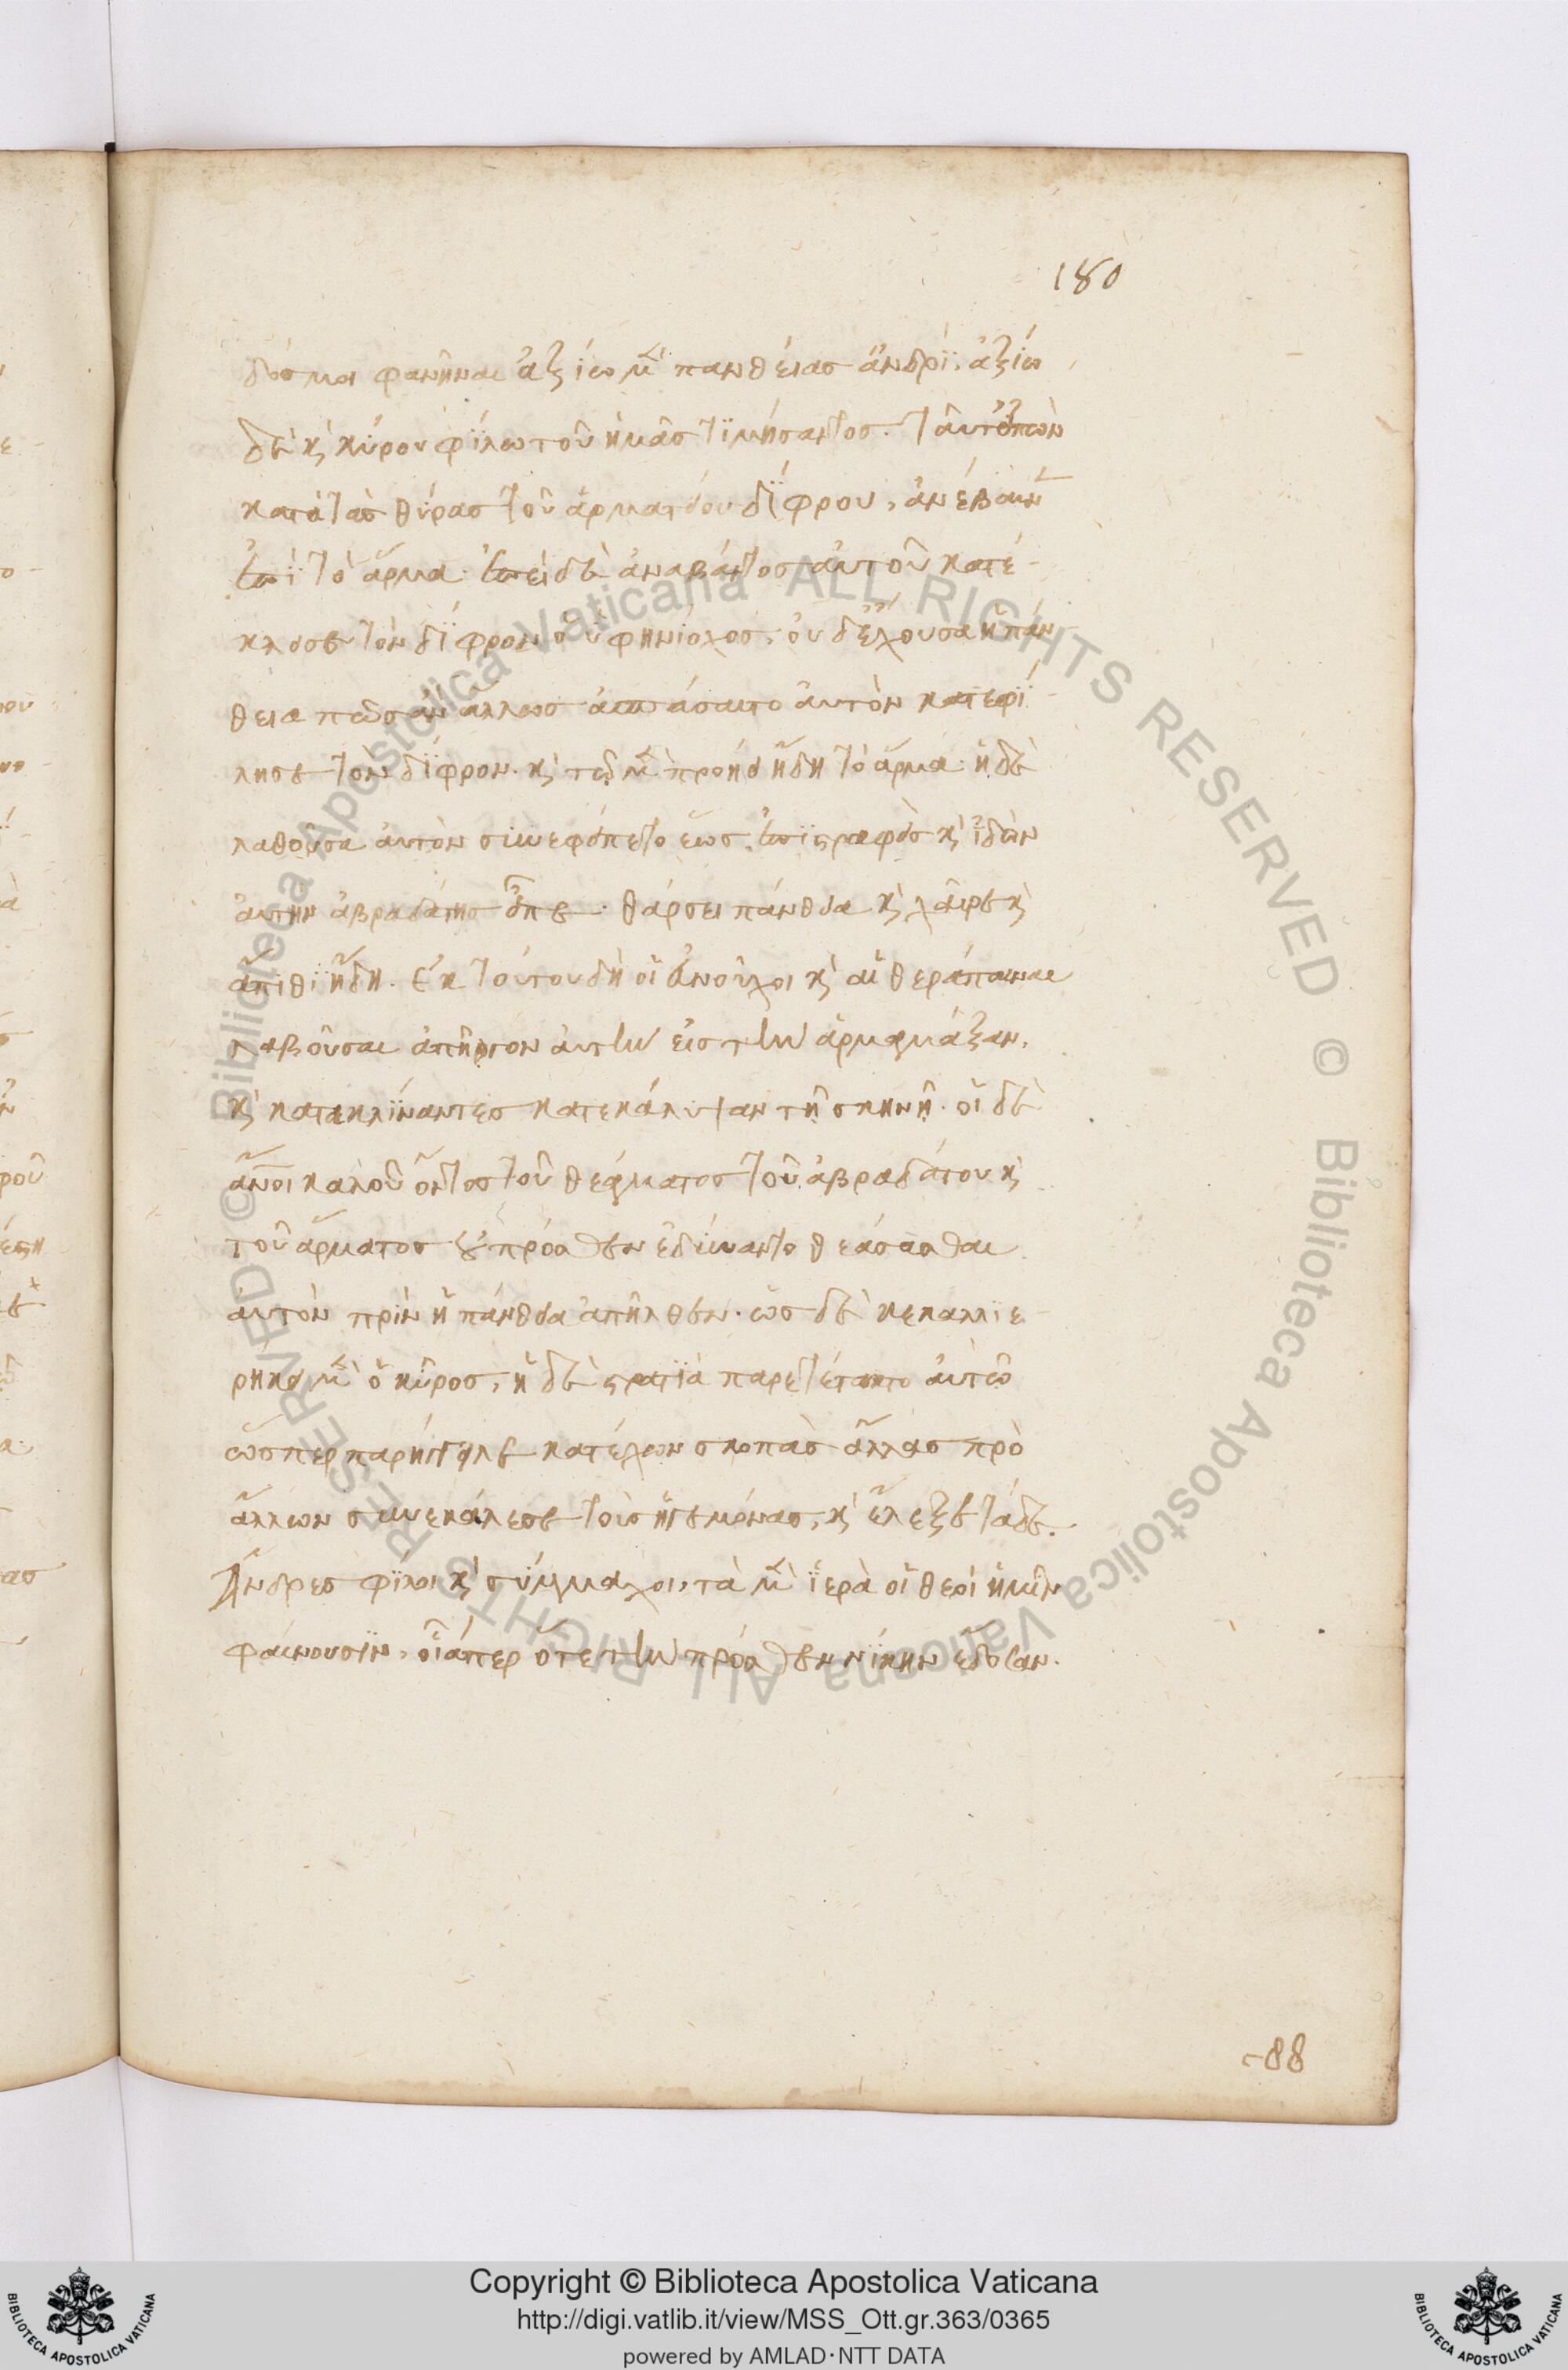 180
δός μοι φανῆναι ἀξίω μὲν πανθείας ἀνδρί. ἀξίω
δὲ κ̀ κύρου φίλω τοῦ ἡμᾶς τιμήσαντος. ταῦτ εἰπὼν
κατὰ τὰς θύρας τοῦ ἁρματείου δίφρου, ἀνέβαινεν
ἐπὶ τὸ ἅρμα. ἐπεὶ δὲ ἀναβάντος αὐτοῦ κατέ-
κλεισε τὸν δίφρον ὁ ὑφηνίοχος. οὐδ ἔχουσα ἡ πάν-
θεια πῶς ἂν ἄλλως ἀσπάσαιτο αὐτὸν κατεφί-
λησε τὸν δίφρον. κ̀ τῷ μὲν προήει ἤδη τὸ ἅρμα. ἡ δὲ
λαθοῦσα αὐτὸν συνεφείπετο ἕως ἐπιστραφεὶς κ̀ ἰδὼν
αὐτὴν ἀβραδάτης εἶπε. θάρσει πάνθεια κ̀ χαῖρε κ̀
ἄπιθι ἤδη. ἐκ τούτου δὴ οἱ εὐνοῦχοι κ̀ αἱ θεράπαιναι
λαβοῦσαι ἀπῆγον αὐτὴν εἰς τὴν ἁρμαμάξαν.
κ̀ κατακλίναντες κατεκάλυψαν τῇ σκηνῇ. οἱ δὲ
ἄνοι καλοῦ ὄντος τοῦ θεάματος τοῦ ἀβραδάτου κ̀
τοῦ ἅρματος οὐ πρόσθεν ἐδύναντο θεάσασθαι
αὐτὸν πρὶν ἡ πάνθεια ἀπῆλθεν. ὡς δὲ κεκαλλιε-
ρήκει μὲν ὁ κῦρος, ἡ δὲ στρατιὰ παρετέτακτο αὐτῶ
ὥσπερ παρήγγειλε κατέχων σκοπὰς ἄλλας πρὸ
ἄλλων συνεκάλεσε τοὺς ἡγεμόνας, κ̀ ἔλεξε τάδε.
Ἄνδρες φίλοι κ̀ σύμμαχοι, τὰ μὲν ἱερὰ οἱ θεοὶ ἡμῖν
φαίνουσιν, οἷάπερ ὅτε τὴν πρόσθεν νίκην ἔδοσαν.
-88
Copyright © Biblioteca Apostolica Vaticana
http://digi.vatlib.it/view/MSS_Ott.gr.363/0365
powered by AMLAD·NTT DATA
Biblioteca Apostolica Vaticana ALL RIGHTS RESERVED © Biblioteca Apostolica Vaticana ALL RIGHTS RESERVED ©
BIBLIOTECA APOSTOLICA VATICANA
BIBLIOTECA APOSTOLICA VATICANA